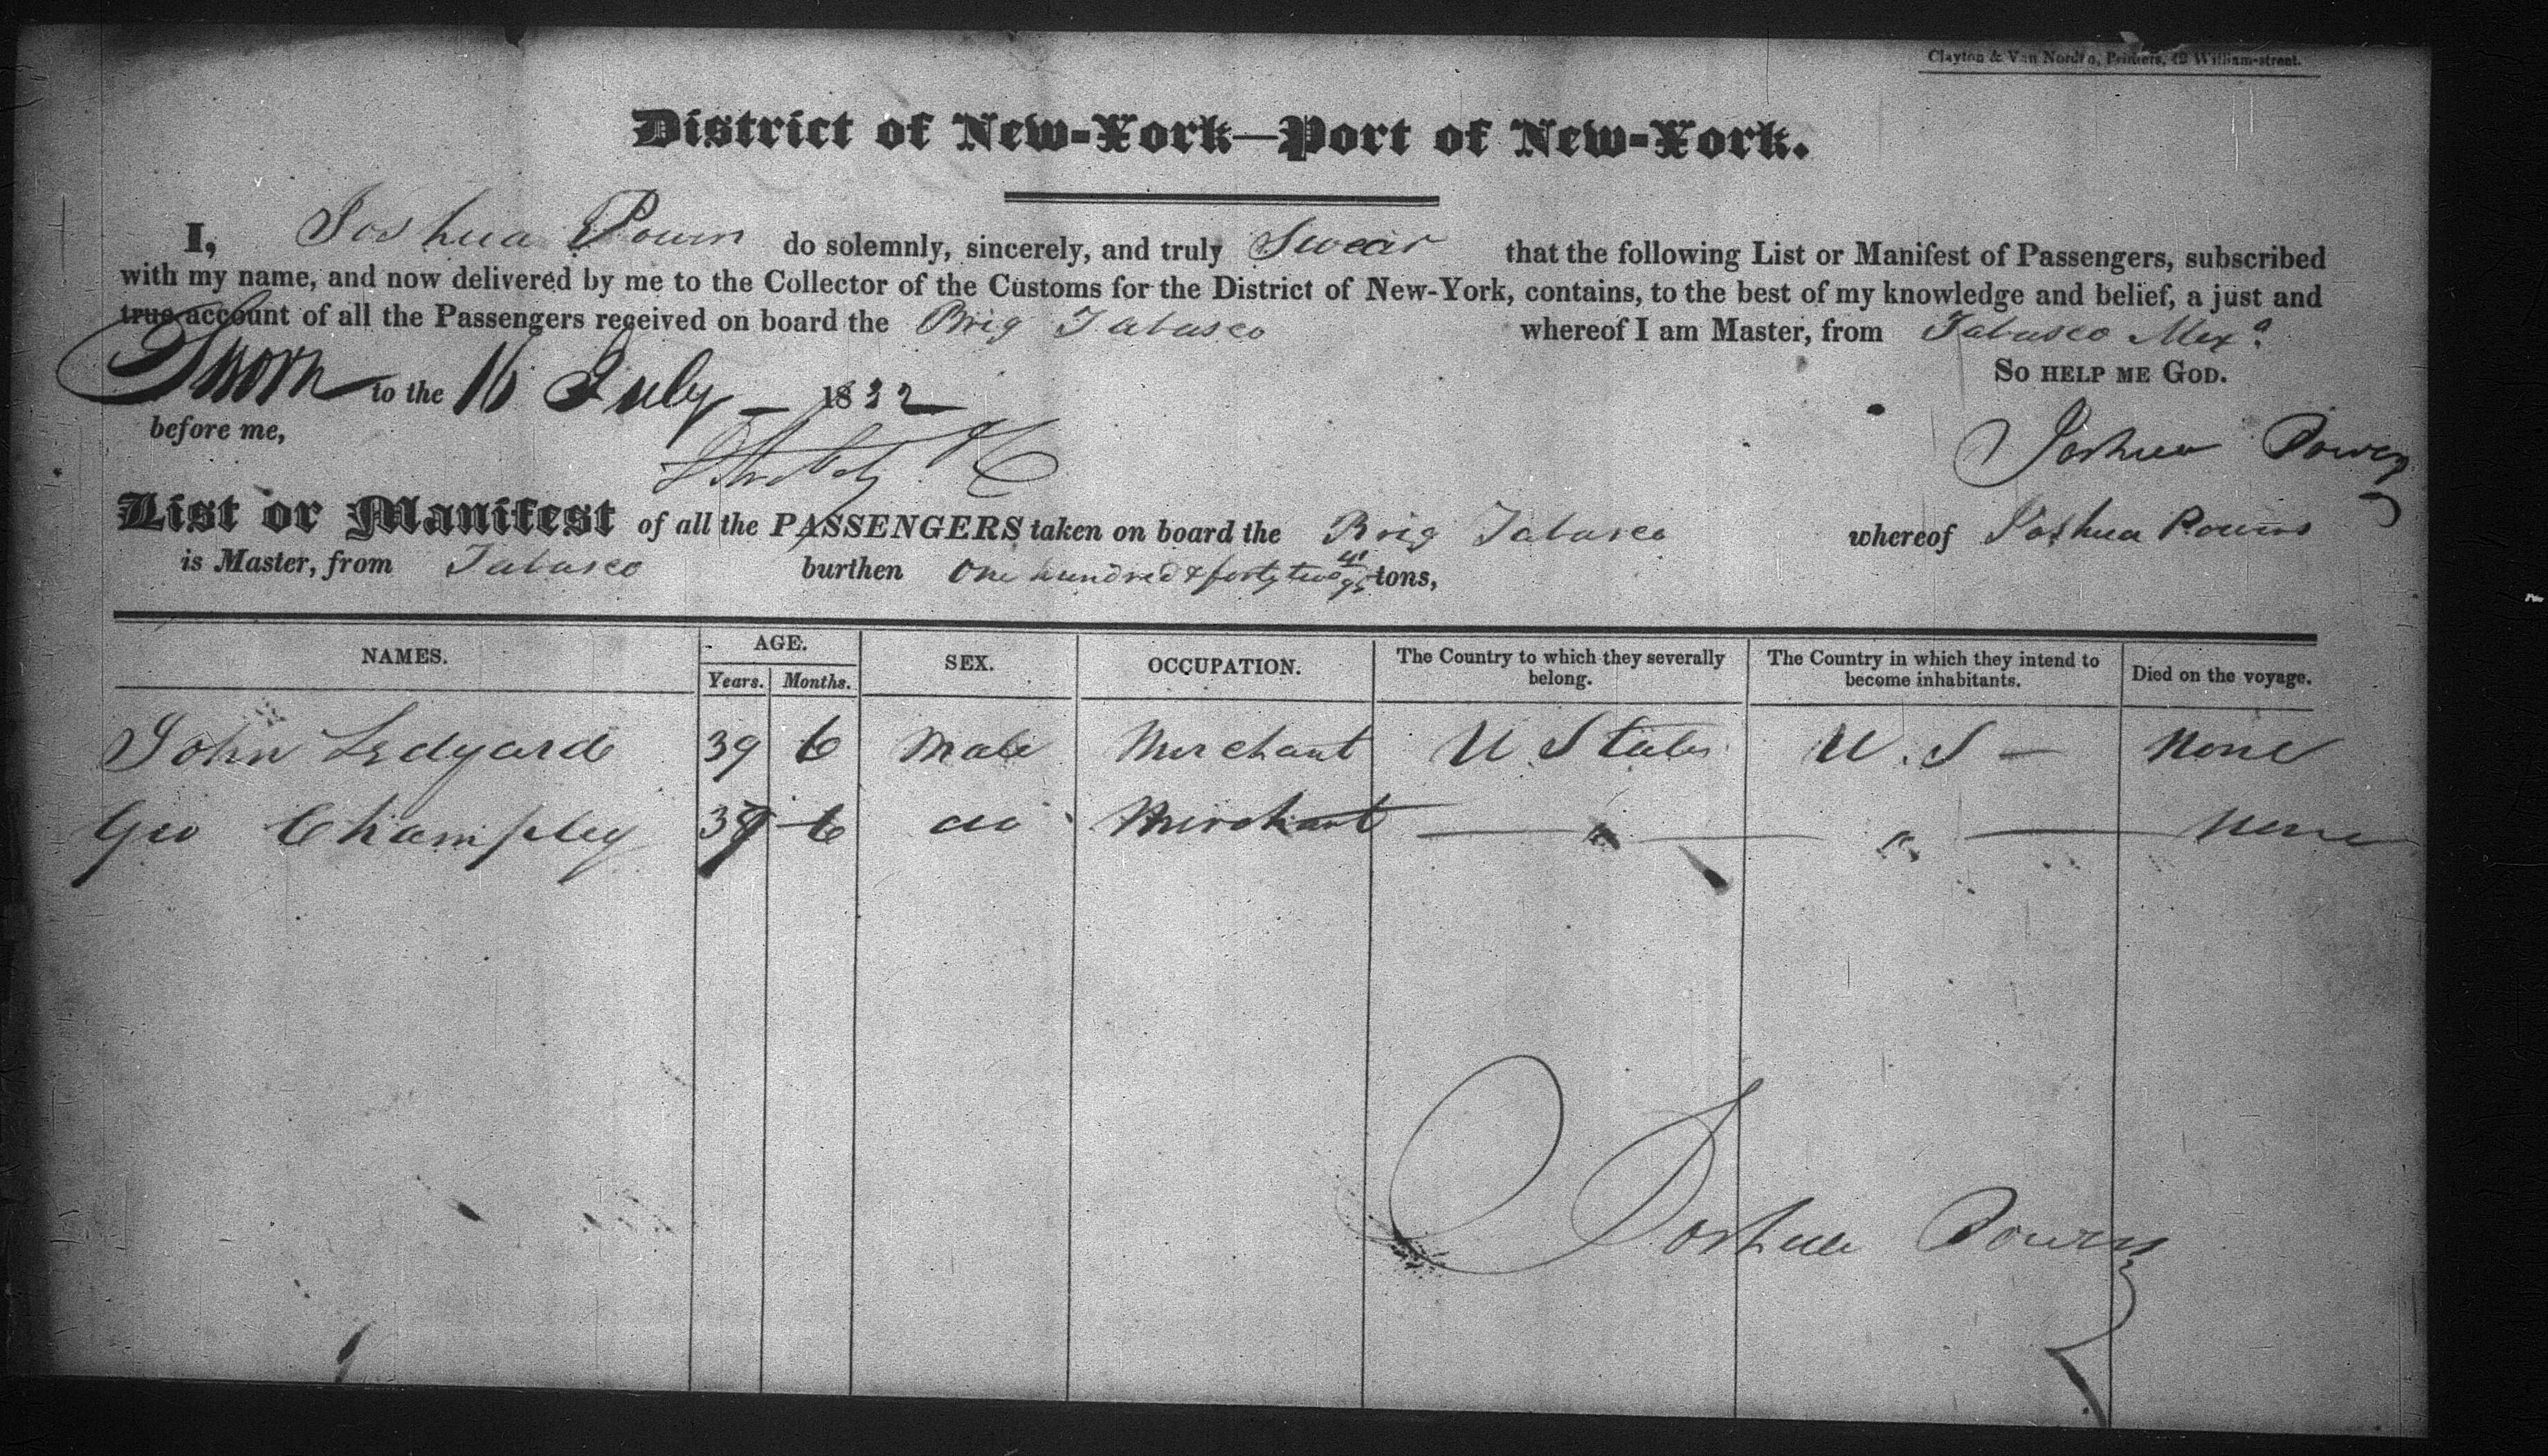 Clayton & Van Norden, Printers, 42 William-street.
District of New-York—Port of New-York.
I, Joshua Powers do solemnly, sincerely, and truly Swear that the following List or Manifest of Passengers, subscribed
with my name, and now delivered by me to the Collector of the Customs for the District of New-York, contains, to the best of my knowledge and belief, a just and
true account of all the Passengers received on board the Brig Tabasco whereof I am Master, from Tabasco Mexa.
So help me God.
Sworn to the 16 July 1832
before me,
Joshua Powers
List or Manifest of all the PASSENGERS taken on board the Brig Tabasco whereof Joshua Powers
is Master, from Tabasco burthen One hundred & forty two /95 tons,
NAMES. AGE. SEX. OCCUPATION. The Country to which they severally belong. The Country in which they intend to become inhabitants. Died on the voyage.
Years. Months.
John Ledyard 39 6 Male Merchant U States U.S — None
Geo Champley 6 do Merchant — " — " — None
Joshua Powers